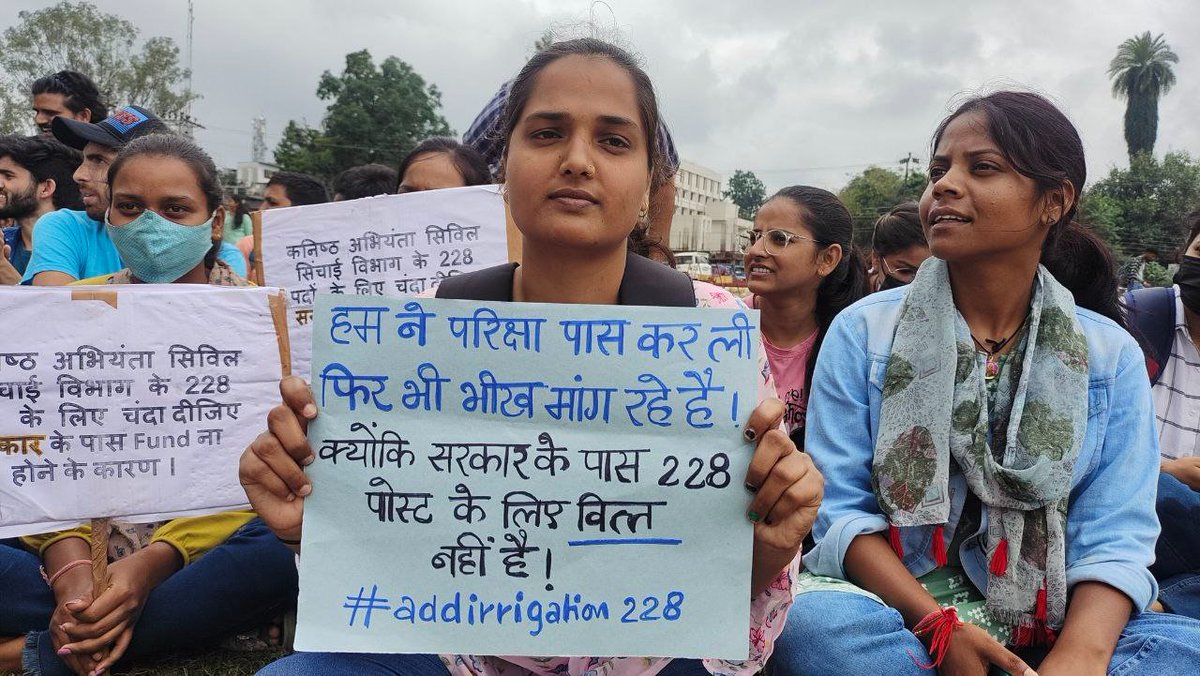 कनिष्ठ अभियंता सिविल
सिंचाई विभाग के 228
पदों के लिए
निष्ठ अभियंता सिविल
चाई विभाग के 228
के लिए चंदा दीजिए
कार के पास Fund ना
होने के कारण ।
हम ने परिक्षा पास कर ली
फिर भी भीख मांग रहे है।
क्योंकि सरकार के पास 228
पोस्ट के लिए वित्त
नहीं है!
#addirrigation 228